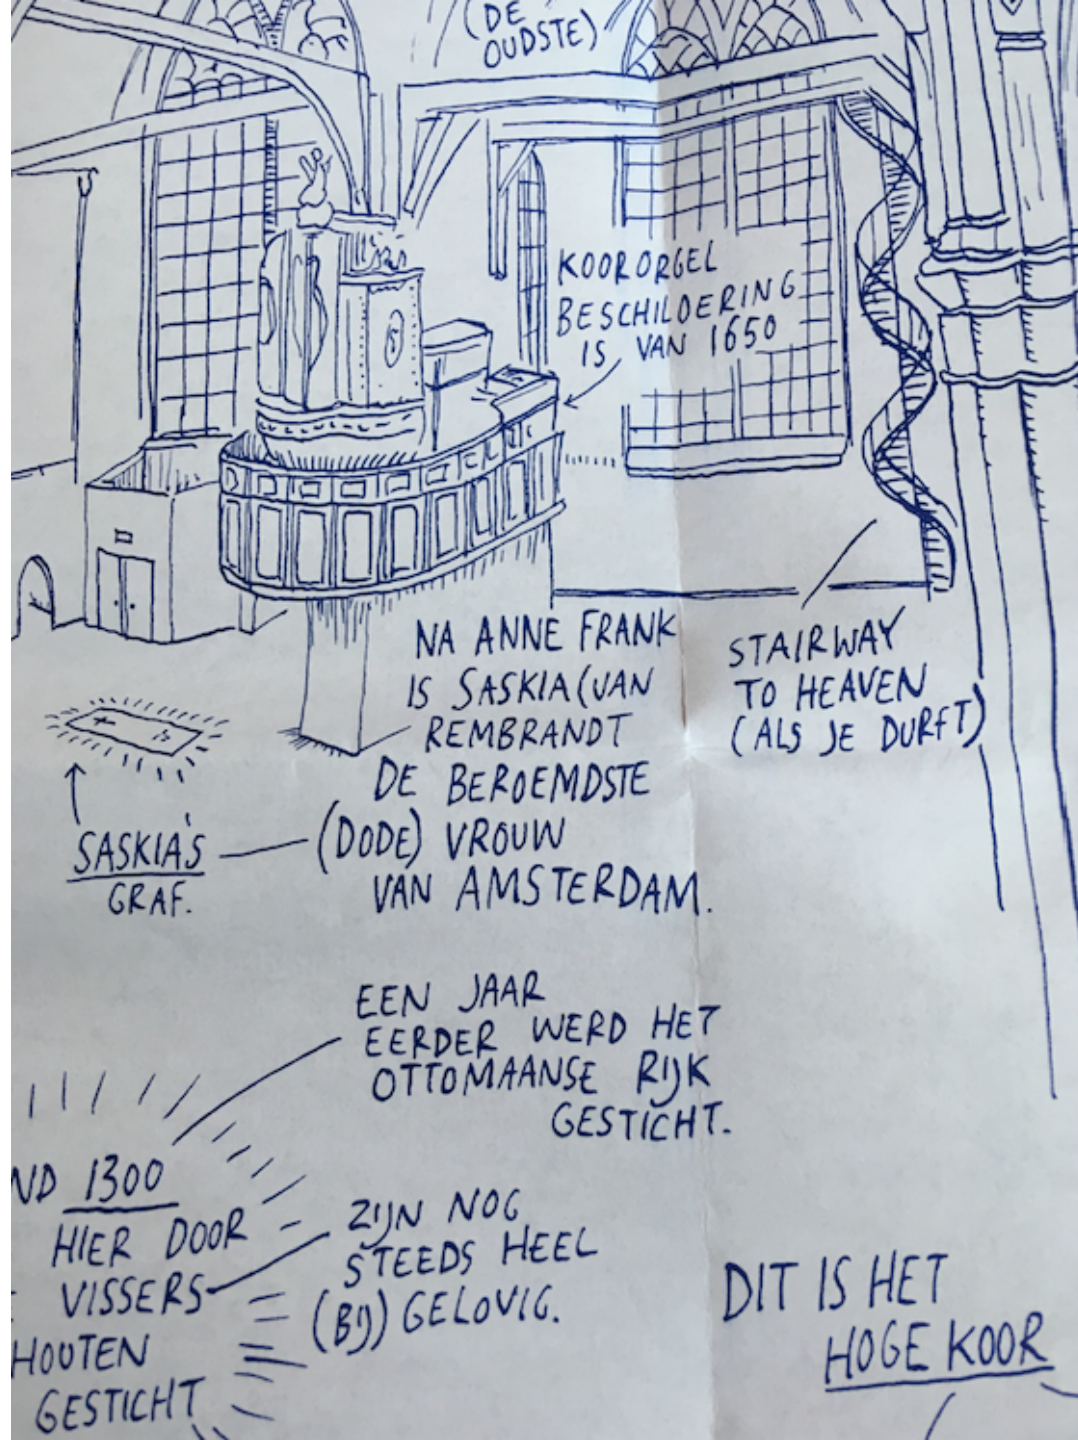 (DE
OUDSTE)
KOORORGEL
BESCHILDERING
IS VAN 1650
NA ANNE FRANK
IS SASKIA (VAN
REMBRANDT
DE BEROEMDSTE
(DODE) VROUW
VAN AMSTERDAM.
STAIRWAY
TO HEAVEN
(ALS JE DURFT)
SASKIA'S
GRAF.
EEN JAAR
EERDER WERD HET
OTTOMAANSE RIJK
GESTICHT.
ND 1300
HIER DOOR
VISSERS
HOUTEN
GESTICHT
ZIJN NOG
STEEDS HEEL
(BIJ) GELOVIG.
DIT IS HET
HOGE KOOR